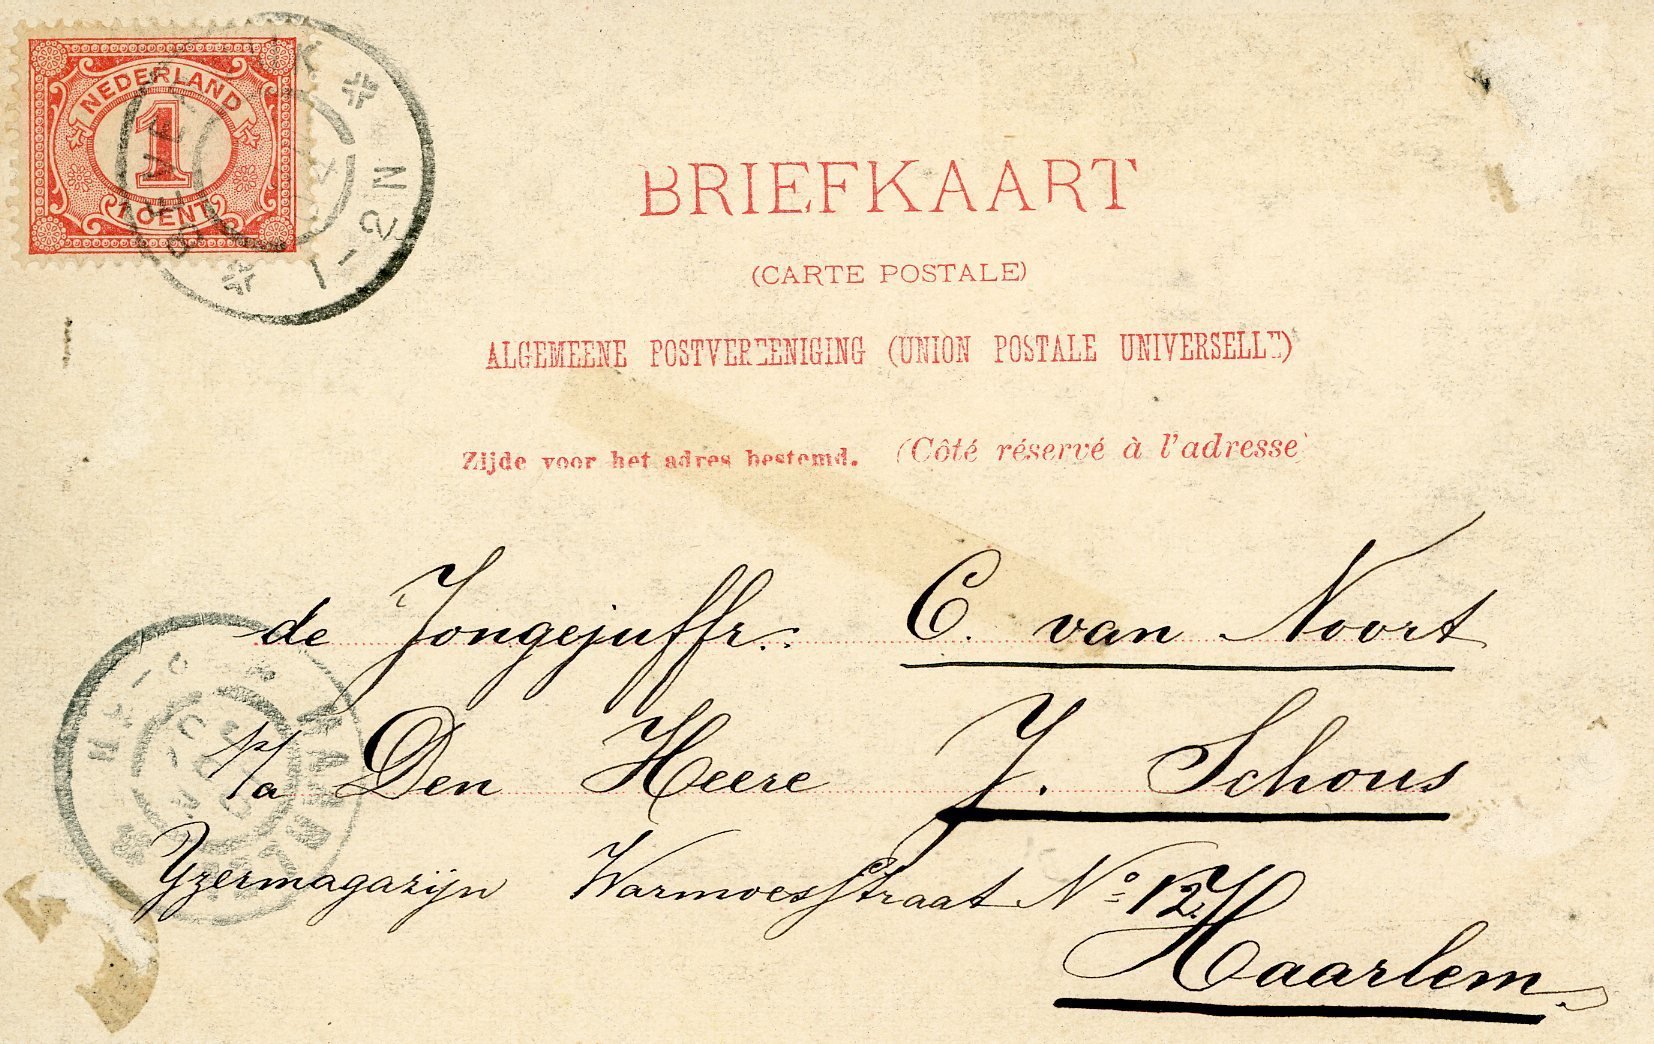 NEDERLAND
1
1 CENT
BRIEFKAART
(CARTE POSTALE)
ALGEMEENE POSTVEREENIGING (UNION POSTALE UNIVERSELLE)
Zijde voor het adres bestemd. (Côté réservé à l'adresse)
de Jongejuffr: C. van Noort
p/a Den Heere J. Schous
Yzermagazijn Warmoesstraat No 12
Haarlem.
HAARLEM